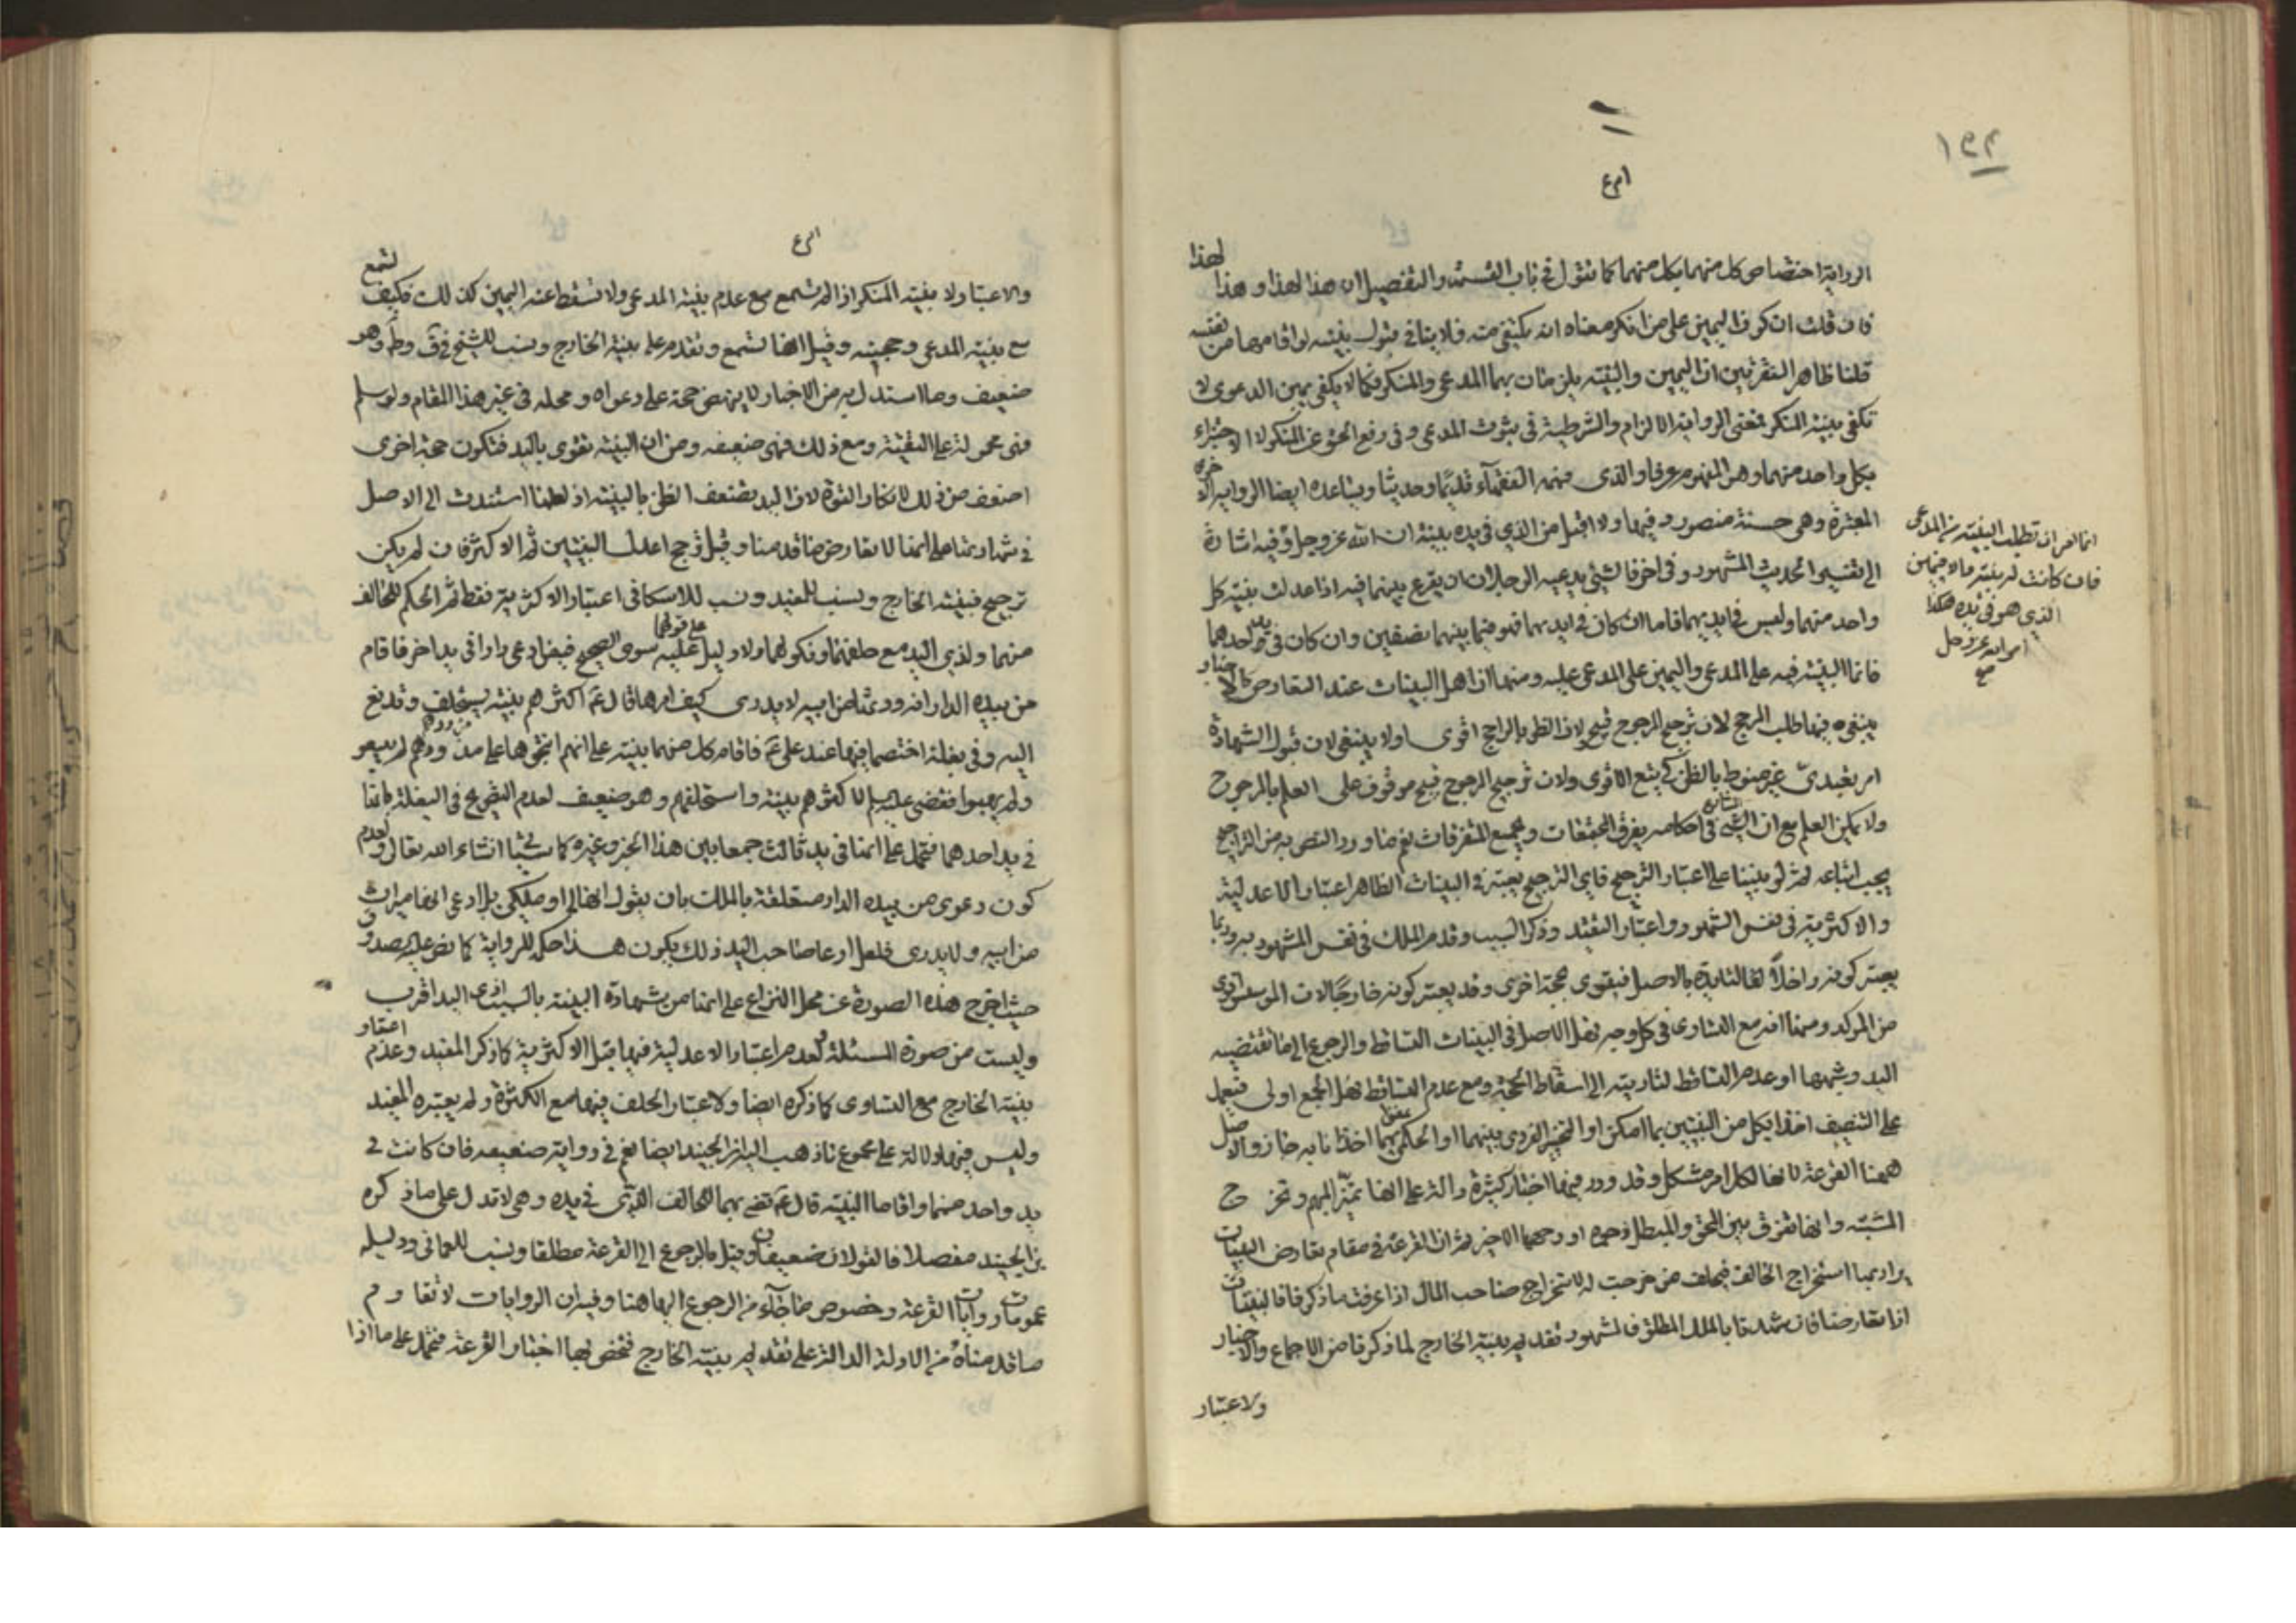 ١٩٢
الرواية اختصاص كل منهما بكل منهما كما نقول في باب القسمة والتفصيل ان هذا لهذا وهذا لهذا
فان قلت ان كون اليمين على من انكر معناه انه يكتفى منه فلا ينافي قبول بينته لو اقامها من نفسه
قلنا ظاهر الفقرتين ان اليمين والبينة يلزمان بهما المدعى والمنكر فكما لا يكفي يمين الدعوى لا
تكفي بينة المنكر فمعنى الرواية الالزام والشرطية في ثبوت المدعى وفي رفع الحق عن المنكر لا الاجتزاء
بكل واحد منهما وهو المفهوم عرفا والذي فهمه الفقهاء قديما وحديثا ويساعده ايضا الرواية الاخرى
المعتبرة وهي حسنة منصور وفيها ولا اقبل من الذي في يده بينة ان الله عز وجل وفيه اشارة
الى تفسير الحديث المشهور وفي اخر فالشيء يدعيه الرجلان ان يقرع بينهما فيه اذا عدلت بينة كل
واحد منهما وليس في ايديهما فاما ان كان في ايديهما فهو فيما بينهما نصفين وان كان في يد احدهما
فانما البينة فيه على المدعي واليمين على المدعى عليه ومنها ان اهل البينات عند التعارض كالاخبار
ينبغي فيها طلب المرجح لان ترجيح المرجوح قبيح ولان الظن بالراجح اقوى اولا ينبغي لان قبول الشهادة
امر تعبدي غير منوط بالظن كي يتبع الاقوى ولان ترجيح المرجوح قبيح موقوف على العلم بالمرجوح
ولا يمكن العلم مع ان الشارع في احكامه يفرق المجتمعات ويجمع المتفرقات نعم ما ورد النص به من التراجيح
يجب اتباعه ثم لو بنينا على اعتبار الترجيح فاي الترجيح يعتبر في البينات الظاهر اعتبار الاعدلية
والاكثرية في نفس الشهود واعتبار التقييد وذكر السبب وقدم الملك في نفس المشهود به وربما
يعتبر كونه داخلا لقا لتأيده بالاصل فيقوى بحجة اخرى وقد يعتبر كونه خارجا لان المؤسس اولى
من المؤكد ومنها انه مع التساوي في كل وجه فهل الاصل في البينات التساقط والرجوع الى ما تقتضيه
اليد وشبهها او عدم التساقط لتأديته الى اسقاط الحجة ومع عدم التساقط فهل الجمع اولى فيعمل
على التنصيف اخذا بكل من البينتين بما امكن او التخيير الفردي بينهما او الحكم بهما اخذا نابه جاز والاصل
ههنا القرعة لانها لكل امر مشكل وقد ورد فيها اخبار كثيرة دالة على انها تميز المبهم وتخرج
المشتبه وانها تفرق بين المحق والمبطل وجوه اوجهها الاخير ثم ان القرعة في مقام تعارض البينات
يراد بها استخراج الحالف فيحلف من خرجت له لا استخراج صاحب المال اذا عرفت ما ذكر فالبينات
اذا تعارضتا فان شهدتا بالملك المطلق فالمشهور تقديم بينة الخارج لما ذكرنا من الاجماع والاخبار
ولاعتبار
انما امر ان تطلب البينة من المدعي
فان كانت له بينة والا فيمين
الذي هو في يده هكذا
امر الله عز وجل
صح
والاعتبار ولا بينة المنكر اذا لم تسمع مع عدم بينة المدعي ولا تسقط عنه اليمين كذلك فكيف تسمع
مع بينة المدعي وحجيته وقيل انها تسمع وتقدم على بينة الخارج ونسب للشيخ في ق وط وهو
ضعيف وما استدل به من الاخبار لا ينهض حجة على دعواه ومحله في غير هذا المقام ولو سلم
فهي محمولة على التقية ومع ذلك فهي ضعيفه ومن ان البينة تقوى باليد فتكون حجة اخرى
اضعف من ذلك لانكار القوة لان اليد يضعف الظن بالبينة اذ لعلها استندت الى الاصل
في شهادتها على انها لا تعارض ما قدمنا وقيل ترجح اعدل البينتين ثم الاكثر فان لم يكن
ترجيح فبينة الخارج ونسب للمفيد ونسب للاسكافي اعتبار الاكثرية فقط ثم الحكم للحالف
منهما ولذي اليد مع حلفهما ونكولهما ولا دليل على قولهما عليه سوى الصحيح فيمن ادعى دارا في يد اخر فاقام
من بيده الدار انه ورثها من ابيه لا يدري كيف امرها قال ع اكثرهم بينة يستحلف وتدفع
اليه وفي بغلة اختصما فيها عند علي ع فاقام كل منهما بينة على انهم انتجوها على مذودهم لم يبيعوا
ولم يهبوا فقضى عليه السلم لاكثرهم بينة واستحلفهم وهو ضعيف لعدم التصريح في البغلة بانها
في يد احدهما فتحمل على انها في يد ثالث جمعا بين هذا الخبر وغيره كما سيأتي انشاء الله تعالى ولعدم
كون دعوى من بيده الدار متعلقة بالملك بان يقول انها لي او ملكي بل ادعى انها ميراث
من ابيه ولا يدري فلعل ادعا صاحب اليد ذلك يكون هذا حكمه للرواية كما نص عليه الصدوق
حيث اخرج هذه الصورة عن محل النزاع على انها من شهادة البينة بالسبب اذ دعوى اليد اقرب
وليست من صورة المسئلة ولعدم اعتبار الاعدلية فيها قبل الاكثرية كما ذكر المفيد وعدم اعتبار
بينة الخارج مع التساوي كما ذكره ايضا ولاعتبار الحلف فيها مع الكثرة ولم يعتبره المفيد
وليس فيها دلالة على مجموع ما ذهب اليه ابن الجنيد ايضا نعم في رواية ضعيفه فان كانت في
يد واحد منهما واقاما البينة قال ع تقضى بهما للحالف الذي في يده وهي لا تدل على ما ذكره
بن الجنيد مفصلا فالقولان ضعيفان وقيل بالرجوع الى القرعة مطلقا ونسب للعماني ودليله
عمومات روايات القرعة وخصوص ما جاء من الرجوع اليها هنا وفيه ان الروايات لا تقاوم
ما قدمناه من الادلة الدالة على تقديم بينة الخارج فتخص بها اخبار القرعة فتحمل على ما اذا